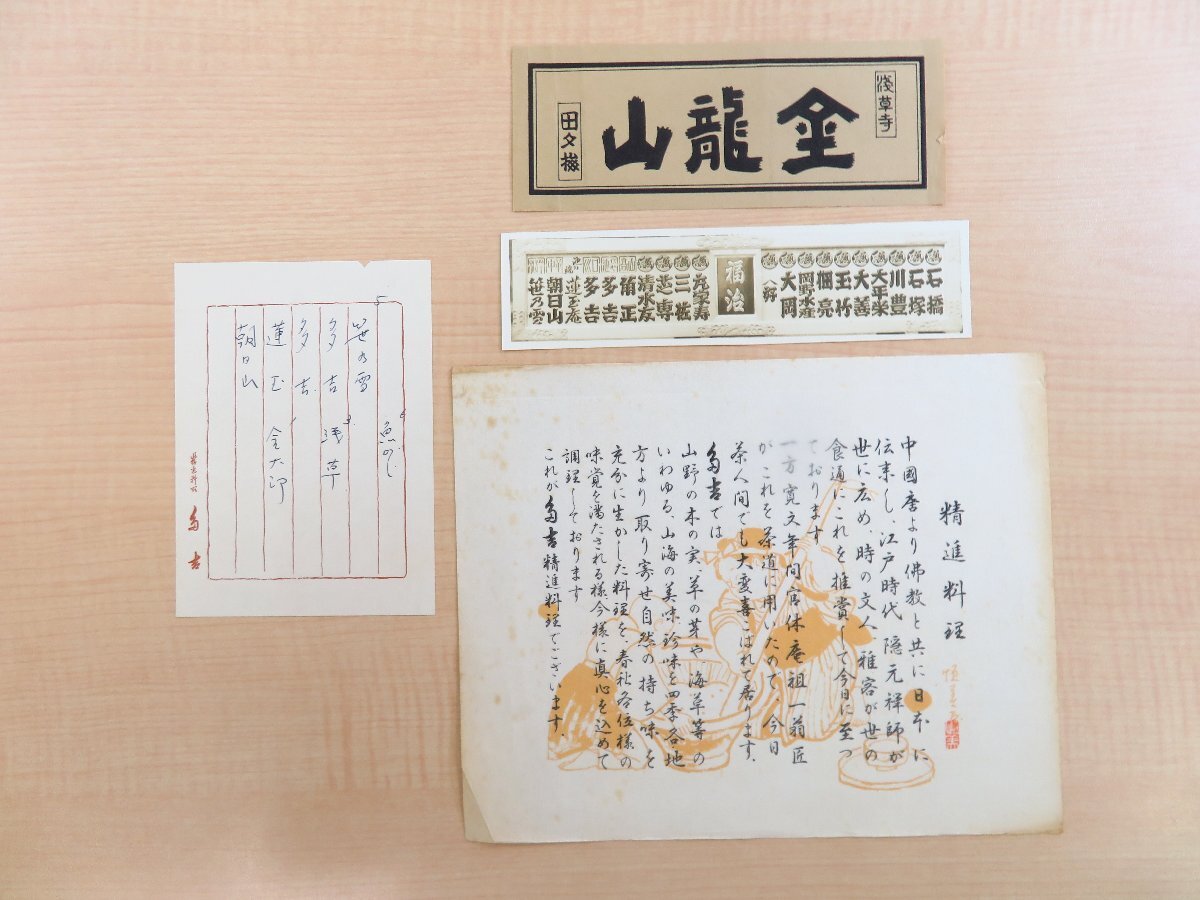 浅草寺
金龍山
田夕梅
石橋
石塚
川豊
大平栄
大善
玉竹
梱亮
岡野水産
大岡
八幹
福治
三桩
芝専
清水友
侑正
多吉
多吉
池の端
蓮玉庵
朝日山
笹乃雪
魚のし
笹の雪
多吉 浅草
多吉
蓮玉 金太郎
朝日山
多吉
精進料理
中國唐より佛教と共に日本に
伝来し、江戸時代 隠元禅師が
世に広め、時の文人 雅客が世の
食通にこれを推賞して今日に至っ
ております
一方 寛文年間官休庵祖一翁匠
が これを茶道に用いたので、今日
茶人間でも大変喜こばれて居ります。
多吉では
山野の木の実、草の芽や 海草等の
いわゆる、山海の美味珍味を四季各地
方より取り寄せ自然の持ち味を
充分に生かした料理を、春秋各位様の
味覚を満たされる様今様に真心を込めて
調理しております
これが多吉精進料理でございます。